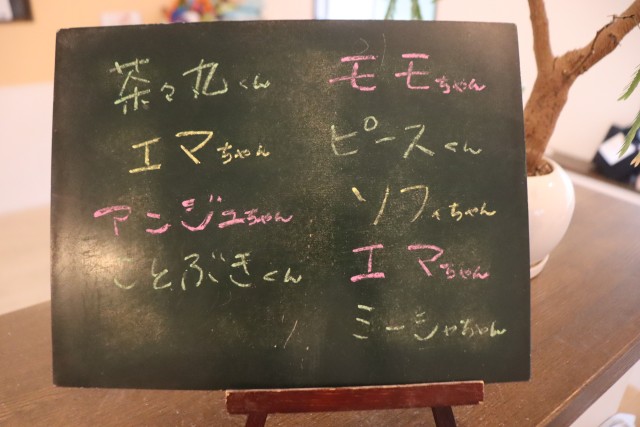 茶々丸くん
エマちゃん
アンジュちゃん
ことぶきくん
モモちゃん
ピースくん
ソフィちゃん
エマちゃん
ミーシャちゃん